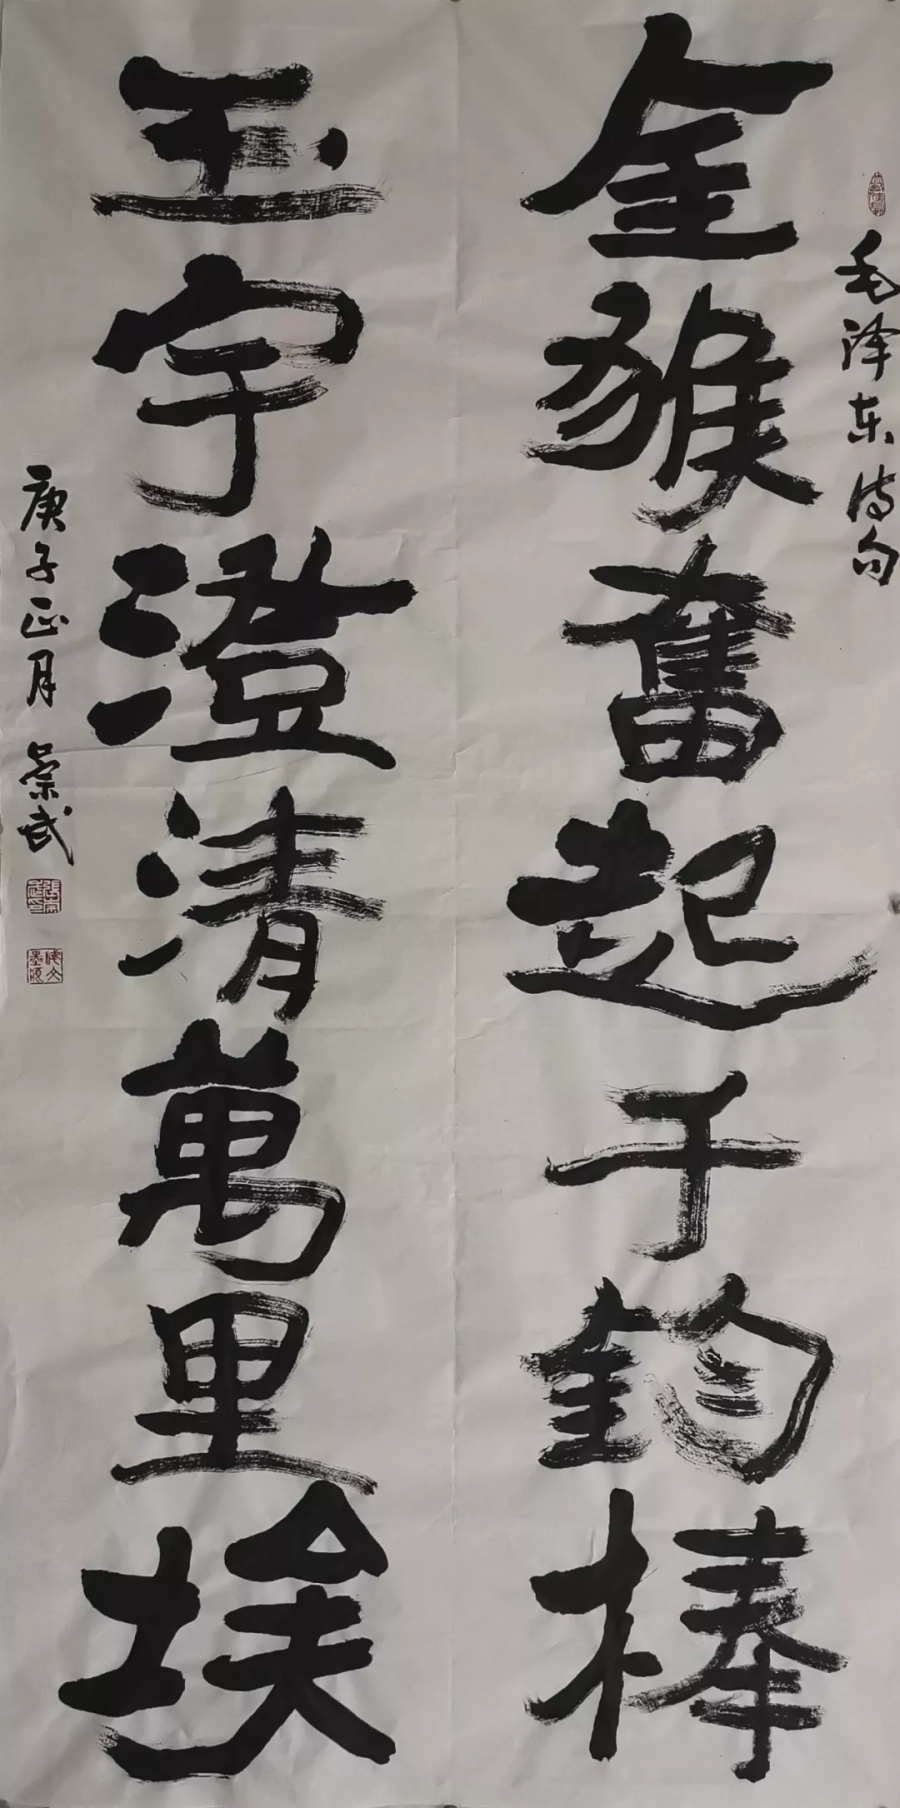 毛泽东诗句
金猴奮起千鈞棒
玉宇澄清萬里埃
庚子正月 崇武